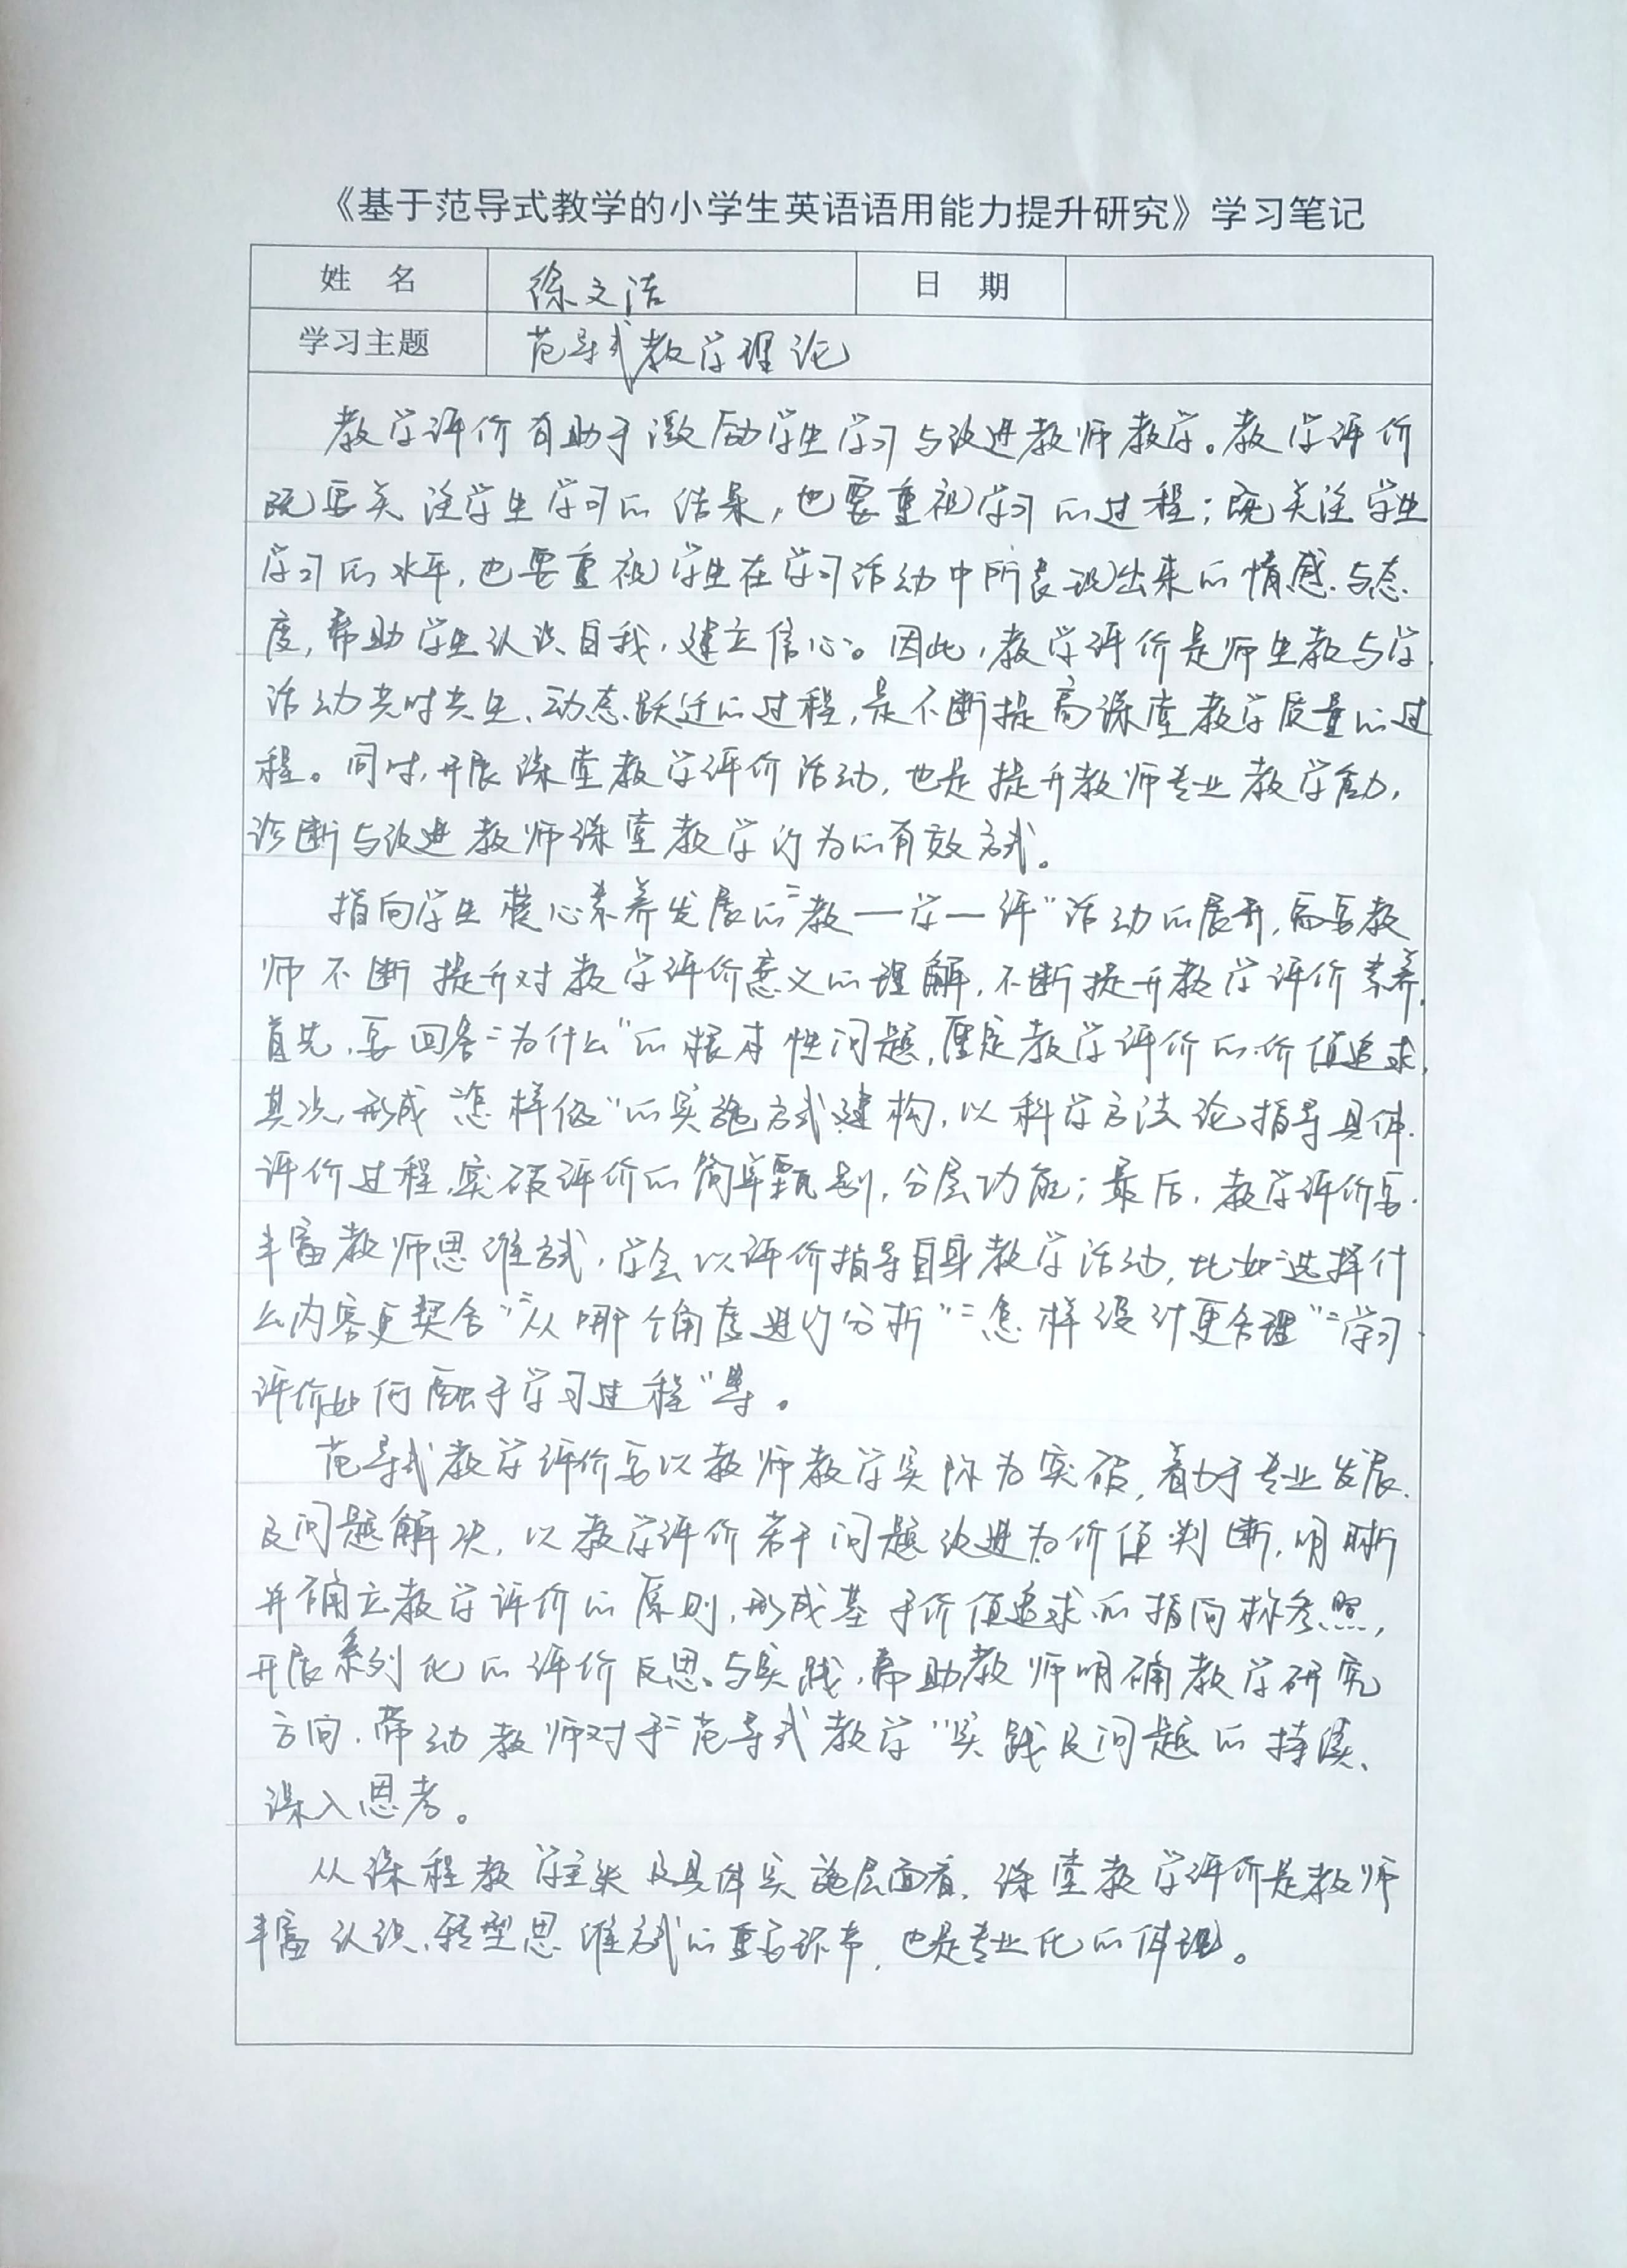 《基于范导式教学的小学生英语语用能力提升研究》学习笔记
姓 名 徐文洁 日 期
学习主题 范导式教学理论
教学评价有助于激励学生学习与改进教师教学。教学评价
既要关注学生学习的结果,也要重视学习的过程;既关注学生
学习的水平,也要重视学生在学习活动中所表现出来的情感与态
度,帮助学生认识自我,建立信心。因此,教学评价是师生教与学
活动共时共生、动态跃迁的过程,是不断提高课堂教学质量的过
程。同时,开展课堂教学评价活动,也是提升教师专业教学能力,
诊断与改进教师课堂教学行为的有效方式。
指向学生核心素养发展的“教—学—评”活动的展开,需要教
师不断提升对教学评价意义的理解,不断提升教学评价素养。
首先,要回答“为什么”的根本性问题,厘定教学评价的价值追求,
其次,形成“怎样做”的实施方式建构,以科学方法论指导具体
评价过程,突破评价的简单甄别,分层功能;最后,教学评价要
丰富教师思维方式,学会以评价指导自身教学活动,比如“选择什
么内容更契合”“从哪个角度进行分析”“怎样设计更合理”“学习
评价如何融于学习过程”等。
范导式教学评价要以教师教学实际为突破,着力于专业发展
及问题解决,以教学评价若干问题改进为价值判断,明晰
并确立教学评价的原则,形成基于价值追求的指向标参照,
开展系列化的评价反思与实践,帮助教师明确教学研究
方向,带动教师对于“范导式教学”实践及问题的持续、
深入思考。
从课程教学主张及具体实施层面看,课堂教学评价是教师
丰富认识、转型思维方式的重要环节,也是专业化的体现。